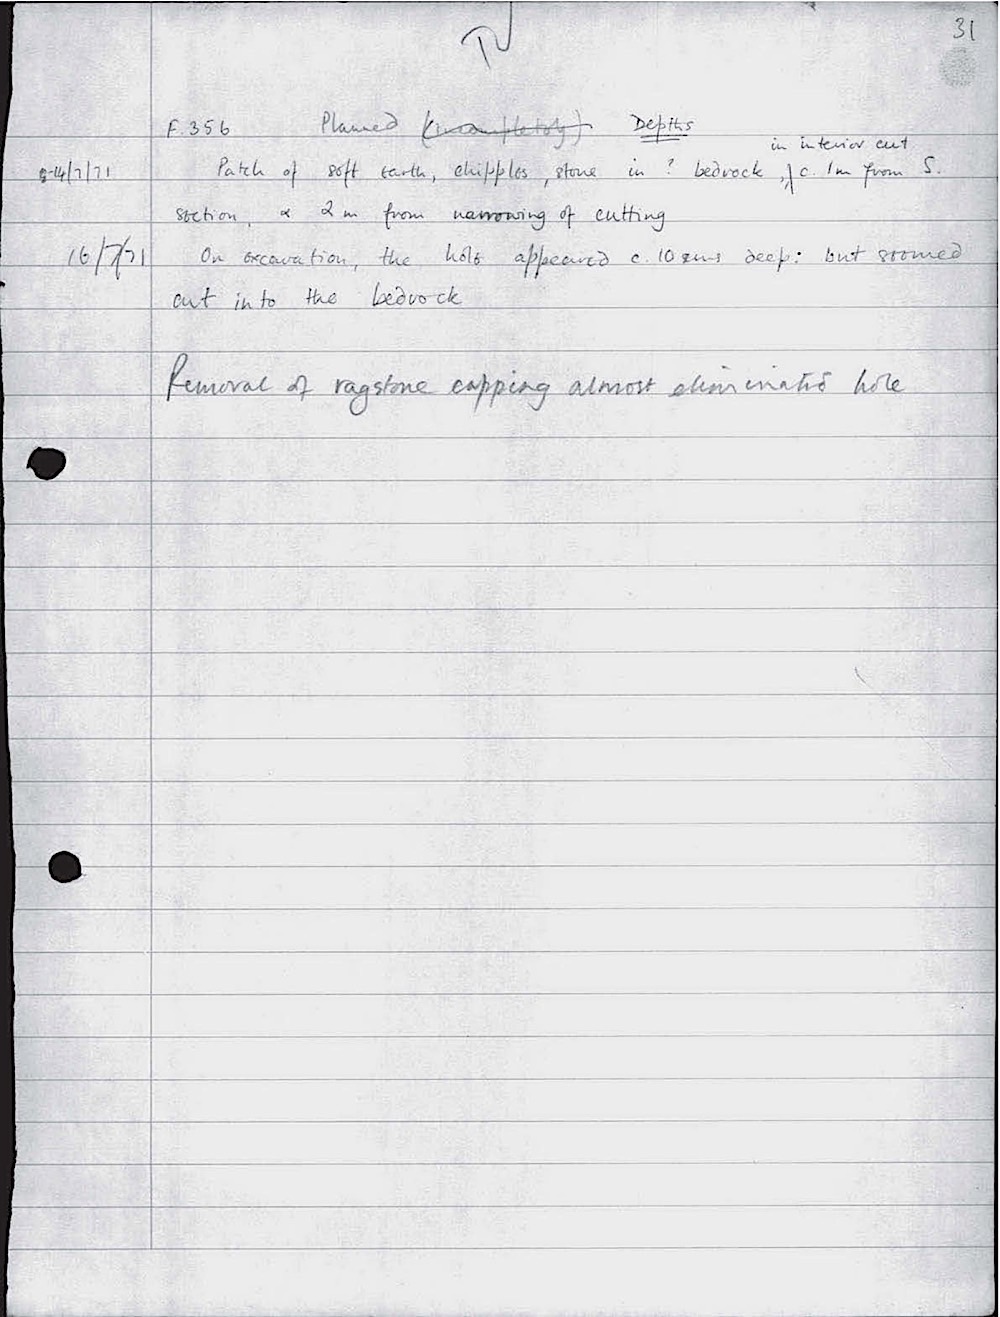 31
F.356 Planned (incompletely) Depths
in interior cut
8-14/7/71 Patch of soft earth, chipples, stone in ? bedrock, c. 1m from S.
section, & 2m from narrowing of cutting
16/7/71 On excavation, the hole appeared c. 10 cms deep: but seemed
cut into the bedrock
Removal of ragstone capping almost eliminated hole